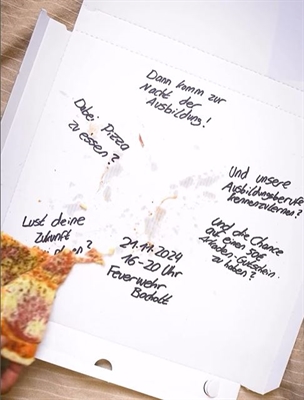 Dann komm zur
Nacht der
Ausbildung!
Dabei Pizza
zu essen?
Und unsere
Ausbildungsberufe
kennenzulernen?
Lust deine
Zukunft
Und die Chance
auf einen 50€
Arkaden-Gutschein
zu haben?
21.11.2024
16-20 Uhr
Feuerwehr
Bocholt